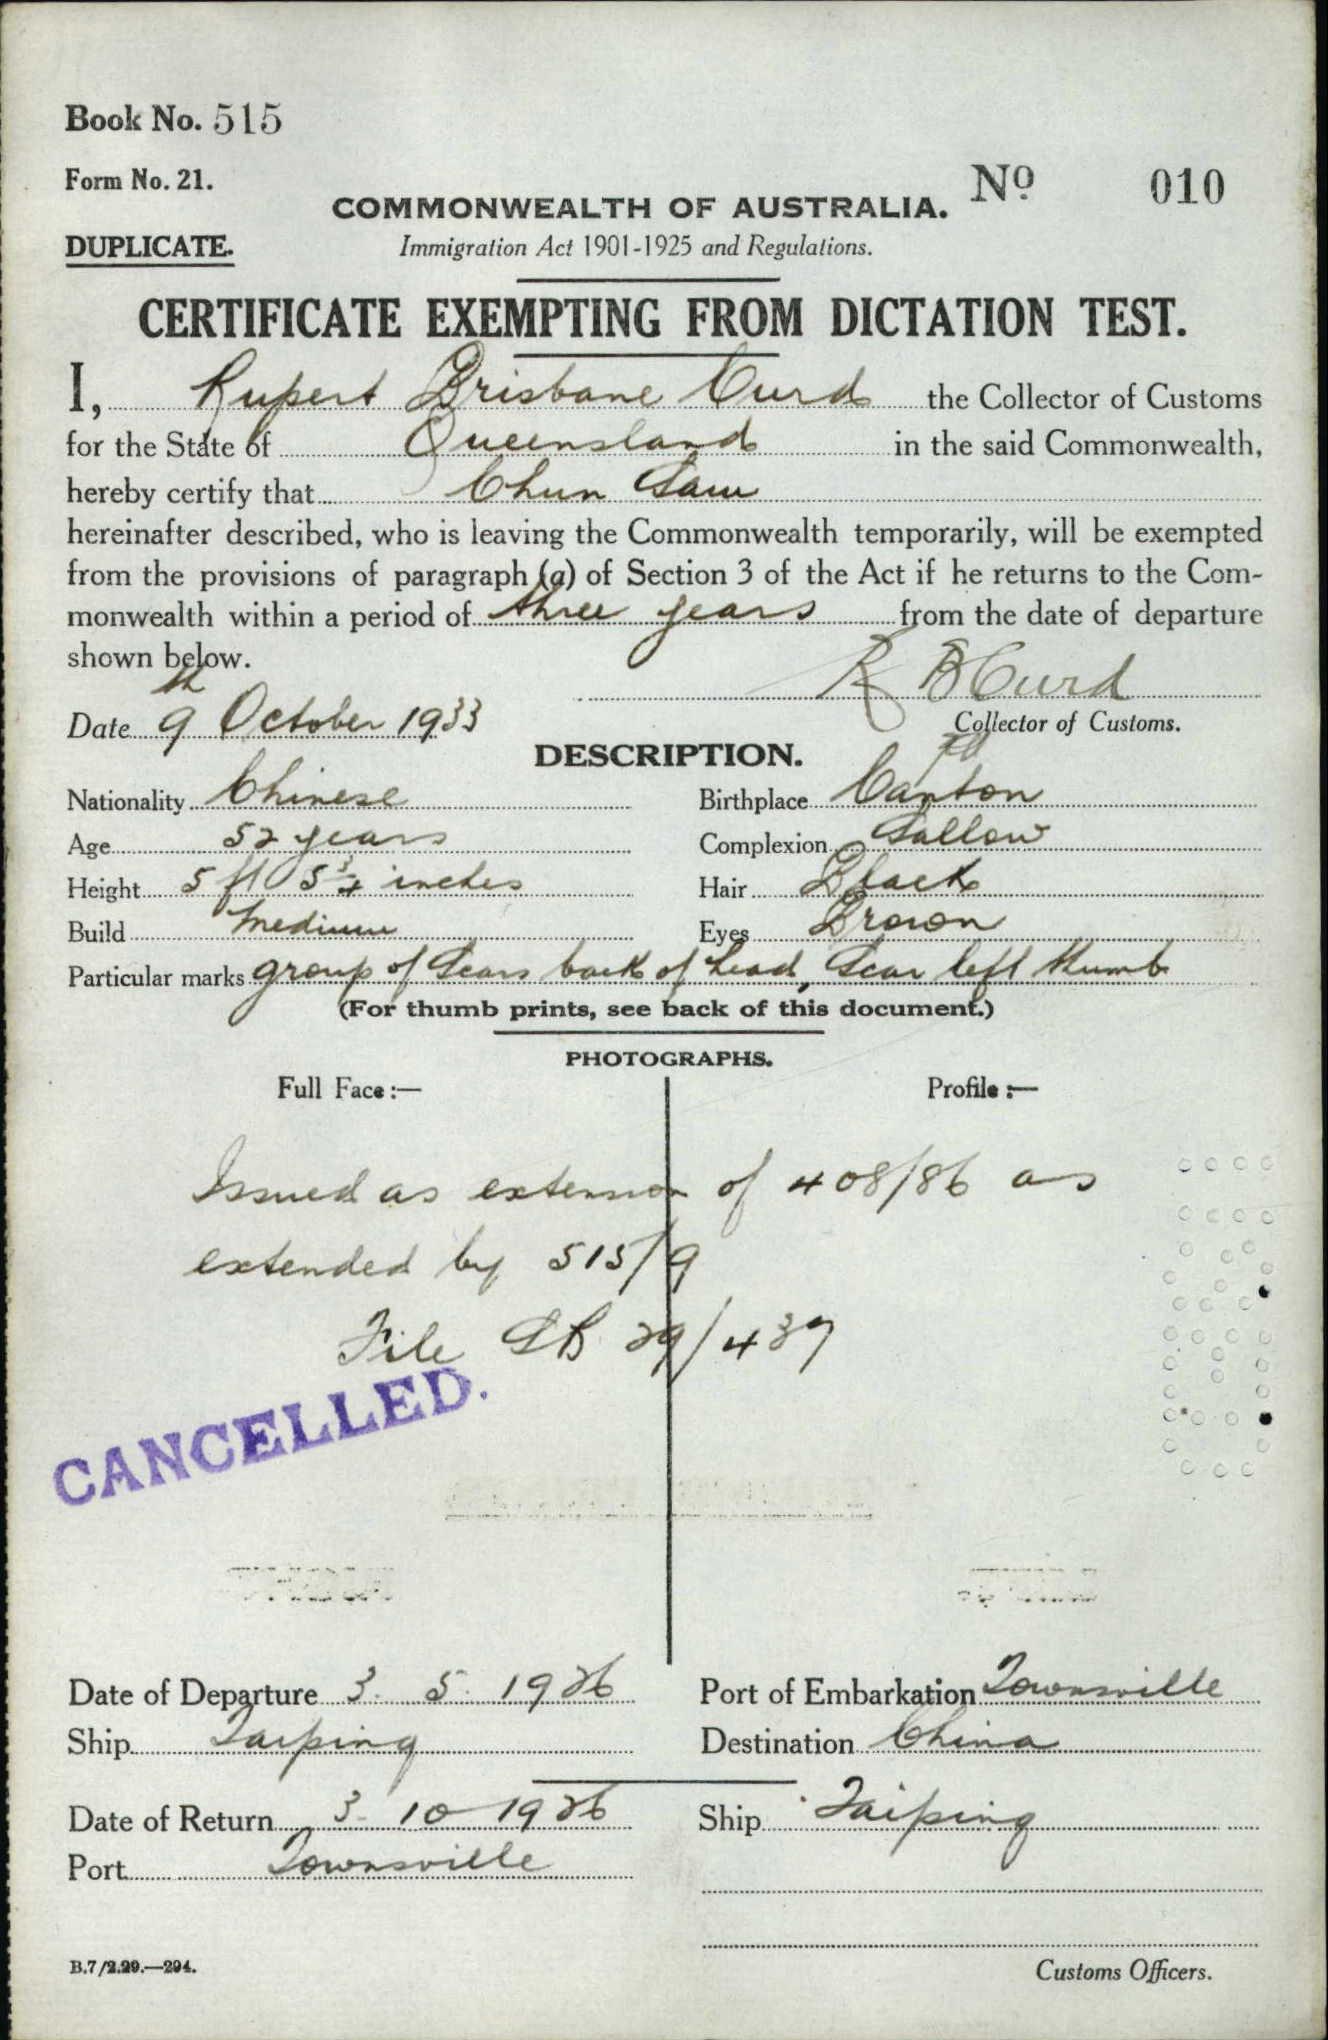 Book No. 515
Form No. 21.
COMMONWEALTH OF AUSTRALIA. No 010
DUPLICATE.
Immigration Act 1901-1925 and Regulations.
CERTIFICATE EXEMPTING FROM DICTATION TEST.
I, Rupert Brisbane Curd the Collector of Customs
for the State of Queensland in the said Commonwealth,
hereby certify that Chun Sam
hereinafter described, who is leaving the Commonwealth temporarily, will be exempted
from the provisions of paragraph (a) of Section 3 of the Act if he returns to the Com-
monwealth within a period of three years from the date of departure
shown below.
R B Curd
Date 9th October 1933
Collector of Customs.
DESCRIPTION.
Nationality Chinese Birthplace Canton
Age 52 years Complexion Sallow
Height 5 ft 5 3/4 inches Hair Black
Build Medium Eyes Brown
Particular marks group of Scars back of head, Scar left thumb
(For thumb prints, see back of this document.)
PHOTOGRAPHS.
Full Face :— Profile :—
Issued as extension of 408/86 as
extended by 515/9
File 29/437
CANCELLED.
Date of Departure 3. 5. 1926 Port of Embarkation Townsville
Ship Taiping Destination China
Date of Return 3 10 1926 Ship Taiping
Port Townsville
B.7/2.29.—294. Customs Officers.